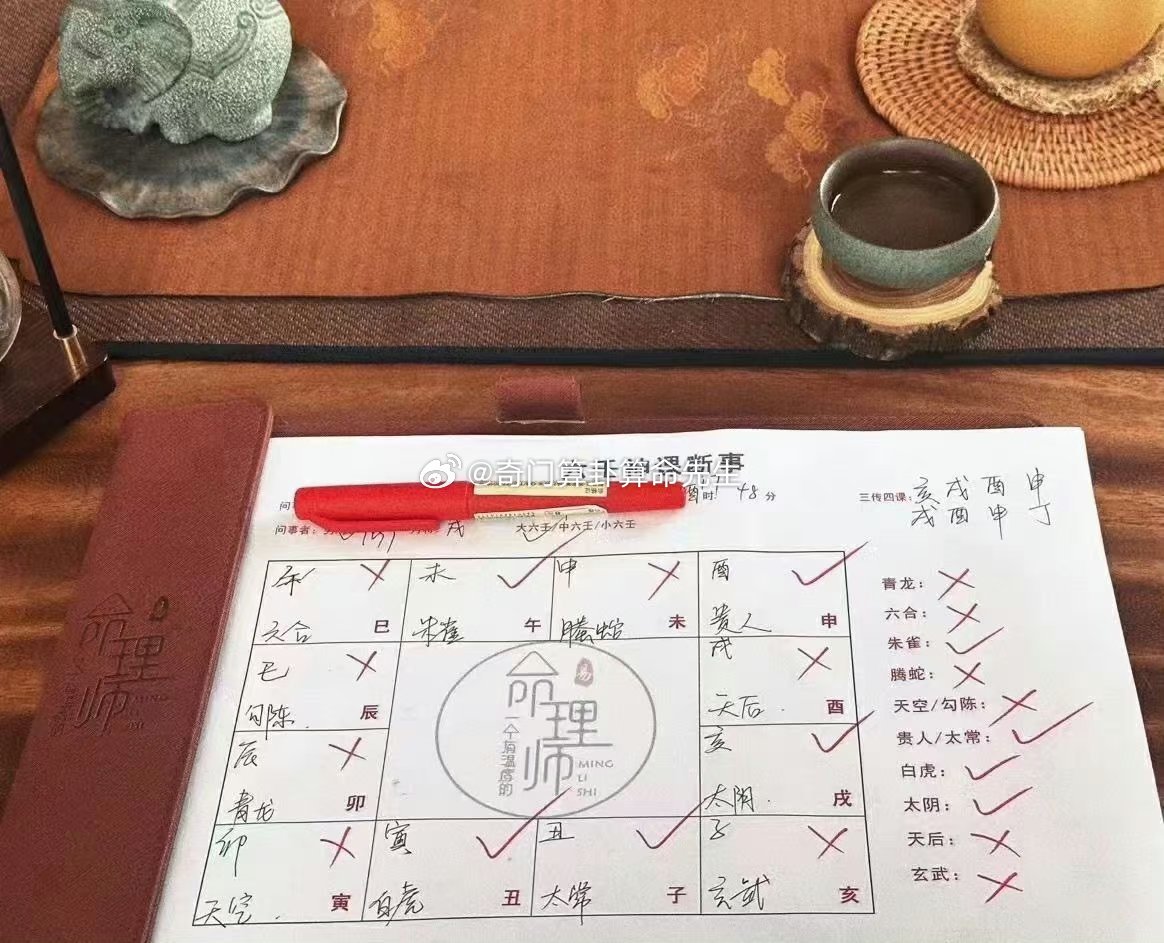 命理师
一个有温度的
MING
LI
SHI
@奇门算卦算命先生
时 48 分
问事者:
戌
大六壬/中六壬/小六壬
三传四课:
亥 戌 酉 申
戌 酉 申 丁
午 未 申 酉
六合 巳 朱雀 午 腾蛇 未 贵人 申
巳 戌
勾陈 辰 天后 酉
辰 亥
青龙 卯 太阴 戌
卯 寅 丑 子
天空 寅 白虎 丑 太常 子 玄武 亥
命理师
易
一个有温度的
MING
LI
SHI
青龙:
六合:
朱雀:
腾蛇:
天空/勾陈:
贵人/太常:
白虎:
太阴:
天后:
玄武: